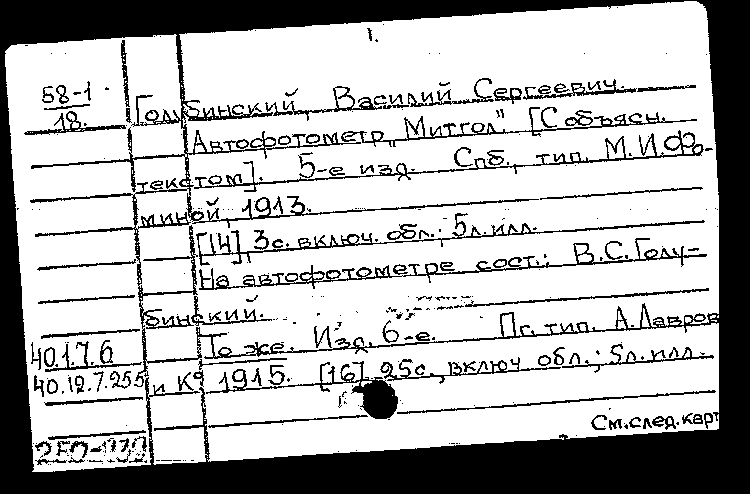 1.
58-1
18.
Голубинский, Василий Сергеевич.
Автофотометр „Митгол". [С объясн.
текстом]. 5-е изд. Спб., тип. М.И.Фо-
миной, 1913.
[14], 3с. включ. обл.; 5л. илл.
На автофотометре сост.: В.С.Голу-
бинский.
То же. Изд. 6-е. Пг. тип. А.Лавров
40.1.7.6
40.12.7.255 и Кº 1915. [16] 25с., включ обл.; 5л. илл.
См.след.карт